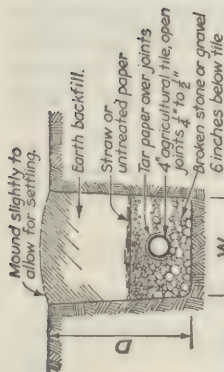 Mound slightly to
allow for settling.
Earth backfill.
Straw or
untreated paper
Tar paper over joints
4" agricultural tile, open
joints 1/4" to 1/2"
Broken stone or gravel
6 inches below tile
D
W